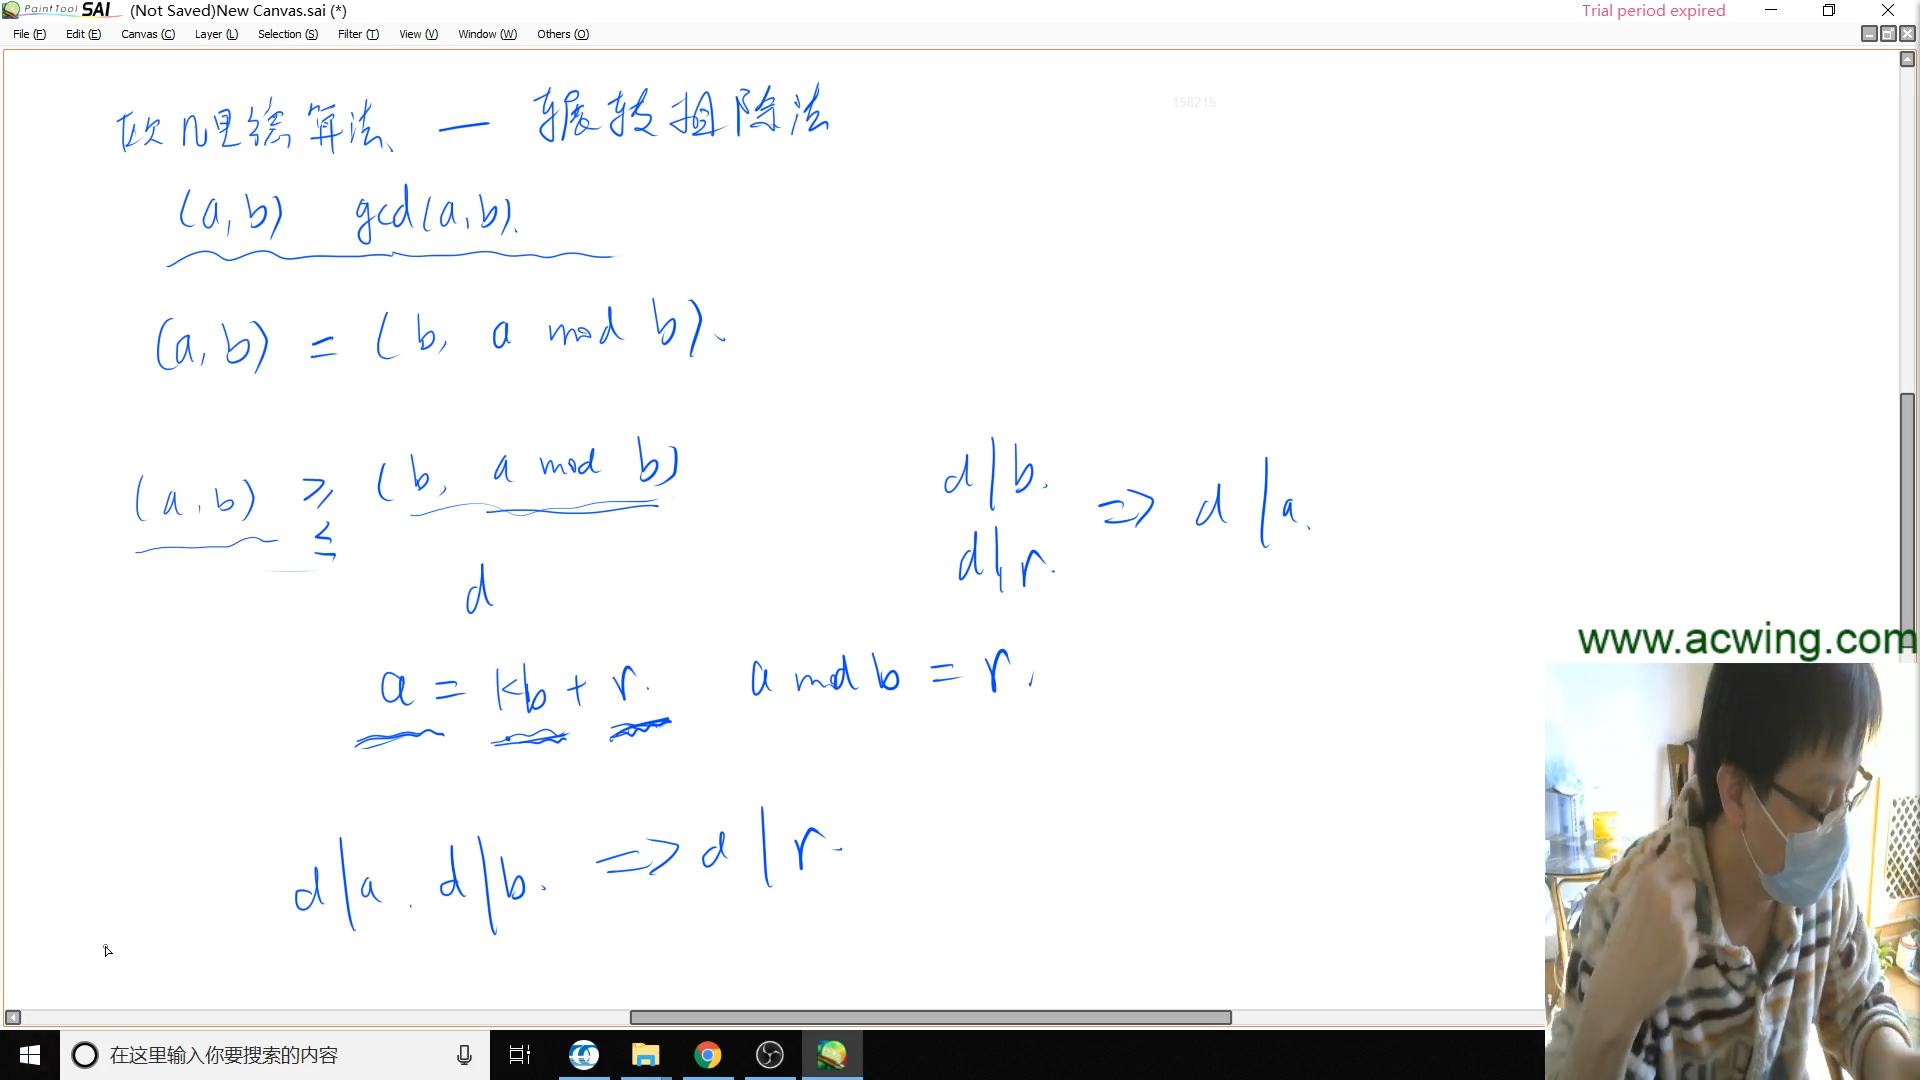 PaintTool SAI (Not Saved)New Canvas.sai (*)
Trial period expired
File (F) Edit (E) Canvas (C) Layer (L) Selection (S) Filter (T) View (V) Window (W) Others (O)
158215
欧几里得算法、— 辗转相除法
(a,b) gcd(a,b).
(a,b) = (b, a mod b).
(a,b) ≥ (b, a mod b)
≤
d|b.
d|r.
⇒ d|a.
d
a = kb + r. a mod b = r.
d|a. d|b. ⇒ d|r.
www.acwing.com
在这里输入你要搜索的内容